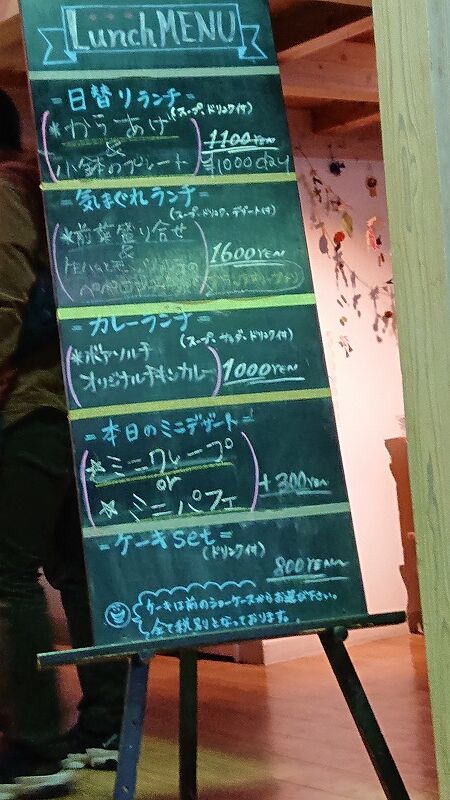 Lunch MENU
= 日替りランチ =
(スープ、ドリンク付)
*からあげ
&
小鉢のプレート
1100YEN
= 気まぐれランチ =
(スープ、ドリンク、デザート付)
*前菜盛り合せ
&
1600YEN
= カレーランチ =
(スープ、サラダ、ドリンク付)
*ボアソルチ
オリジナルチキンカレー
1000YEN
= 本日のミニデザート =
☆ミニクレープ
or
☆ミニパフェ
+300YEN
= ケーキset =
(ドリンク付)
800YEN
ケーキは前のショーケースからお選び下さい。
全て税別となっております。